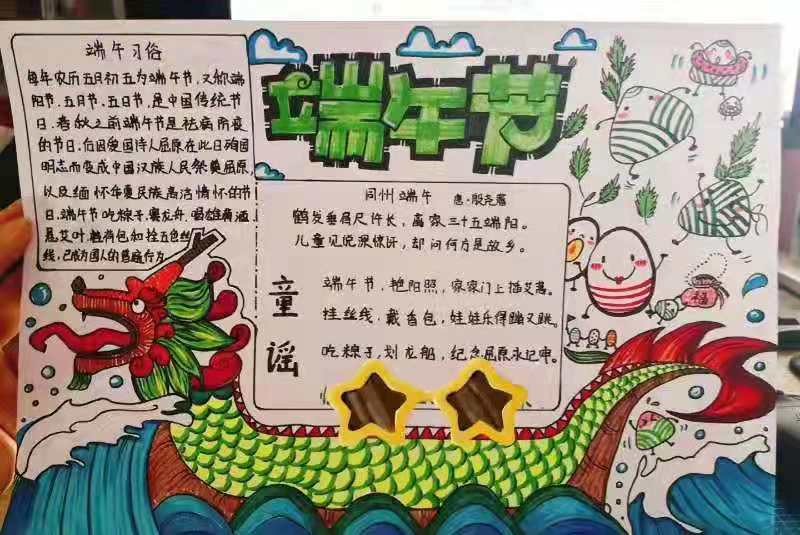 端午习俗
每年农历五月初五为端午节，又称端
阳节、五月节、五日节，是中国传统节
日。春秋之前端午节是祛病防疫
的节日，后因爱国诗人屈原在此日殉国
明志而变成中国汉族人民祭奠屈原，
以及缅怀华夏民族高洁情怀的节
日。端午节吃粽子，赛龙舟，喝雄黄酒
悬艾叶，香包和拴五色丝
线，已成为国人的
端午节
同州端午 唐·殷尧藩
鹤发垂肩尺许长，离家三十五端阳。
儿童见说深惊讶，却问何方是故乡。
童谣
端午节，艳阳照，家家门上插艾蒿。
挂丝线，戴香包，娃娃乐得蹦又跳。
吃粽子，划龙船，纪念屈原永记中。
福